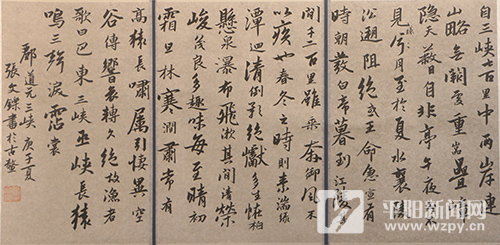 自三峡七百里中兩岸連
山略無闕處重岩疊嶂
隐天蔽日自非亭午夜分
見曦月至於夏水襄陵
沿溯阻絶或王命急宣有
時朝發白帝暮到江陵
間千二百里雖乘奔御風不
以疾也春冬之時則素湍緑
潭迴清倒影絶巘多生怪柏
懸泉瀑布飛漱其間清榮
峻茂良多趣味每至晴初
霜旦林寒澗肅常有
高猿長嘯屬引悽異空
谷傳響哀轉久絶故漁者
歌曰巴東三峡巫峡長猿
鳴三聲淚霑裳
酈道元三峡庚子夏
張文鋒書於古鳌
平阳新闻网
WWW.PYXWW.COM